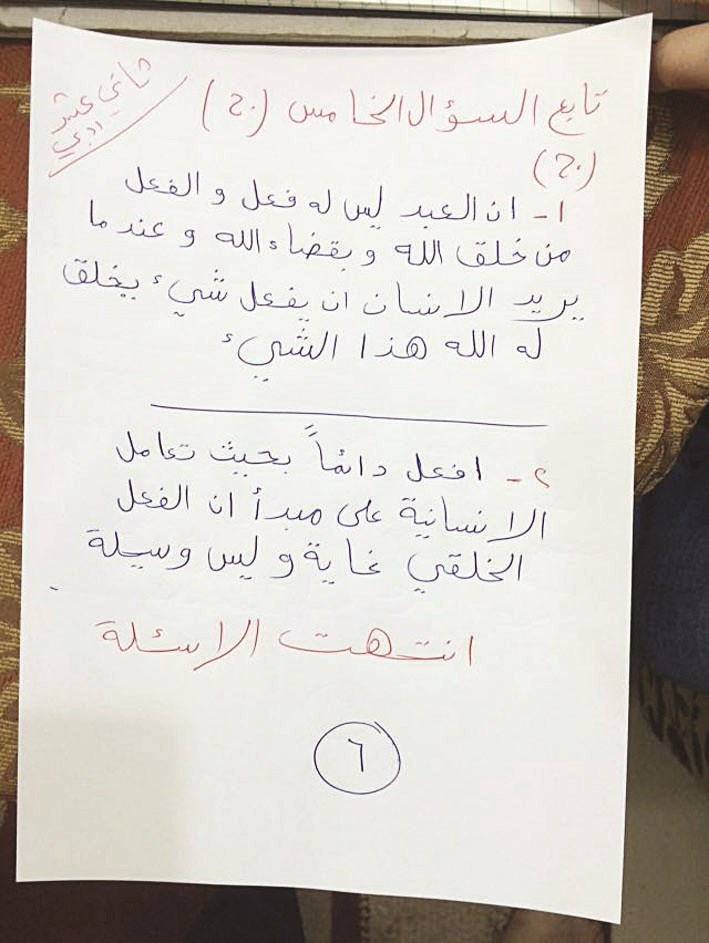 ثاني عشر
ادبي
تابع السؤال الخامس (ج)
(ج)
١- ان العبد ليس له فعل و الفعل
من خلق الله و بقضاء الله و عندما
يريد الانسان ان يفعل شيء يخلق
له الله هذا الشيء
٢- افعل دائماً بحيث تعامل
الانسانية على مبدأ ان الفعل
الخلقي غاية و ليس وسيلة
انتهت الاسئلة
٦